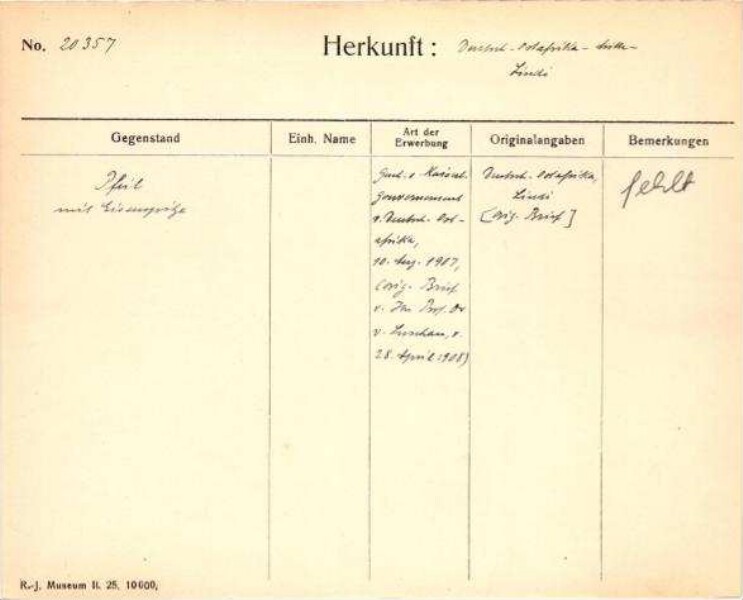 No. 20357
Herkunft: Deutsch-Ostafrika-
Lindi
Gegenstand
Einh. Name
Art der Erwerbung
Originalangaben
Bemerkungen
Pfeil
mit Eisenspitze
v. Kaiserl.
Gouvernement
v. Deutsch-Ost-
afrika,
10. Aug. 1907,
(orig. Brief
v. Hrn Prof. Dr
v. Luschan, v.
28. April 1908)
Deutsch-Ostafrika,
Lindi
[Orig. Brief]
fehlt
R.-J. Museum II. 25. 10000,